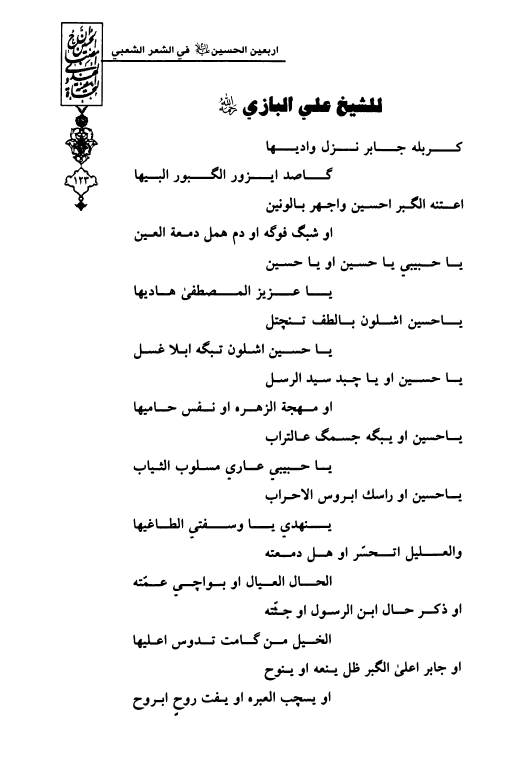 اربعين الحسين عليه السلام في الشعر الشعبي
١٢٣
للشيخ علي البازي رحمه الله
كـــربله جـابر نـزل واديـها
گـاصد ايـزور الگـبور البـيها
اعـتنه الگبر احسين واجهر بـالونين
او شبگ فوگه او دم همل دمـعة العـين
يـا حـبيبي يـا حسين او يـا حسين
يـا عـزيز المـصطفىٰ هـاديها
يـاحسين اشـلون بـالطف تـنچتل
يـا حسـين اشلون تـبگه ابـلا غسـل
يـا حسـين او يـا چـبد سيد الرسـل
او مـهجة الزهـره او نـفس حـاميها
يـاحسين او يـبگه جسـمگ عـالتراب
يـا حـبيبي عـاري مسـلوب الثـياب
يـاحسين او راسك ابـروس الاحـراب
يـنهدي يـا وسـفتي الطـاغيها
والعـليل اتـحسّر او هـل دمـعته
الحـال العـيال او بـواچـي عـمّته
او ذكـر حـال ابـن الرسـول او جـثّته
الخـيل مـن گـامت تـدوس اعـليها
او جابر اعلىٰ الگبر ظل يـنعه او يـنوح
او يسچب العبره او يـفت روحٍ ابـروح